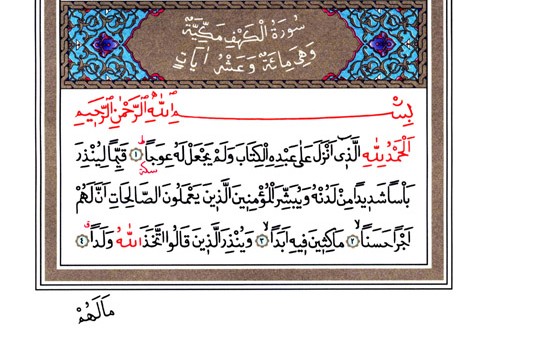 سُورَةُ الْكَهْفِ مَكِّيَّةٌ
وَهِيَ مِائَةٌ وَعَشْرُ اٰيَاتٍ
بِسْمِ اللهِ الرَّحْمٰنِ الرَّحِيمِ
اَلْحَمْدُ لِلّٰهِ الَّذٖٓى اَنْزَلَ عَلٰى عَبْدِهِ الْكِتَابَ وَلَمْ يَجْعَلْ لَهُ عِوَجاً ۜ ﴿١﴾ قَيِّماً لِيُنْذِرَ
سكته
بَأْساً شَدٖيداً مِنْ لَدُنْهُ وَيُبَشِّرَ الْمُؤْمِنٖينَ الَّذٖينَ يَعْمَلُونَ الصَّالِحَاتِ اَنَّ لَهُمْ
اَجْراً حَسَناًۙ ﴿٢﴾ مَاكِثٖينَ فٖيهِ اَبَداًۙ ﴿٣﴾ وَيُنْذِرَ الَّذٖينَ قَالُوا اتَّخَذَ اللهُ وَلَداً ﴿٤﴾
مَالَهُمْ